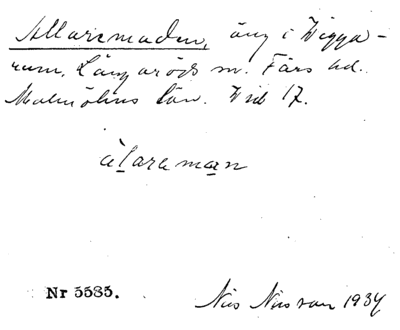 Allaremaden, äng i Vigga-
rum, Långaröds sn. Färs hd.
Malmöhus län. Vid 17.
àlaraman
Nr 5585.
Nils Nilsson 1934